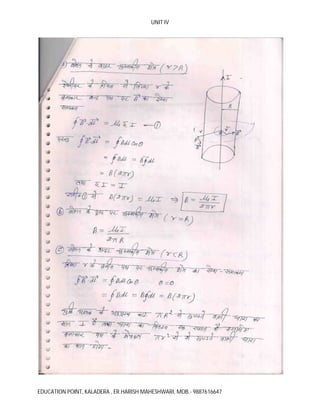 UNIT IV
a) बेलन के बाहर चुम्बकीय क्षेत्र (r>R)
एम्पीयर के नियम से त्रिज्या r के
वृत्ताकार बन्द पथ पर B का रेखा
∮B⃗.dl⃗ = μ₀ΣI —①
परन्तु ∮B⃗.dl⃗ = ∮Bdl cosθ
= ∮Bdl = B∮dl
= B(2πr)
तथा ΣI = I
समी० ① से B(2πr) = μ₀I ⇒ B = μ₀I/2πr
(b) बेलन के पृष्ठ पर चुम्बकीय क्षेत्र (r=R)
B = μ₀I/2πR
(c) बेलन के अन्दर चुम्बकीय क्षेत्र (r<R)
त्रिज्या r के बन्द पथ पर चुम्बकीय क्षेत्र का रेखा-समाकलन
∮B⃗.dl⃗ = ∮Bdl cosθ θ=0
= ∮Bdl = B∮dl = B(2πr)
πR² से गुजरने वाली धारा का
मान I है
πr² से गुजरने वाली धारा
का मान होगा -
I
R
EDUCATION POINT, KALADERA , ER.HARISH MAHESHWARI, MOB.- 9887616647